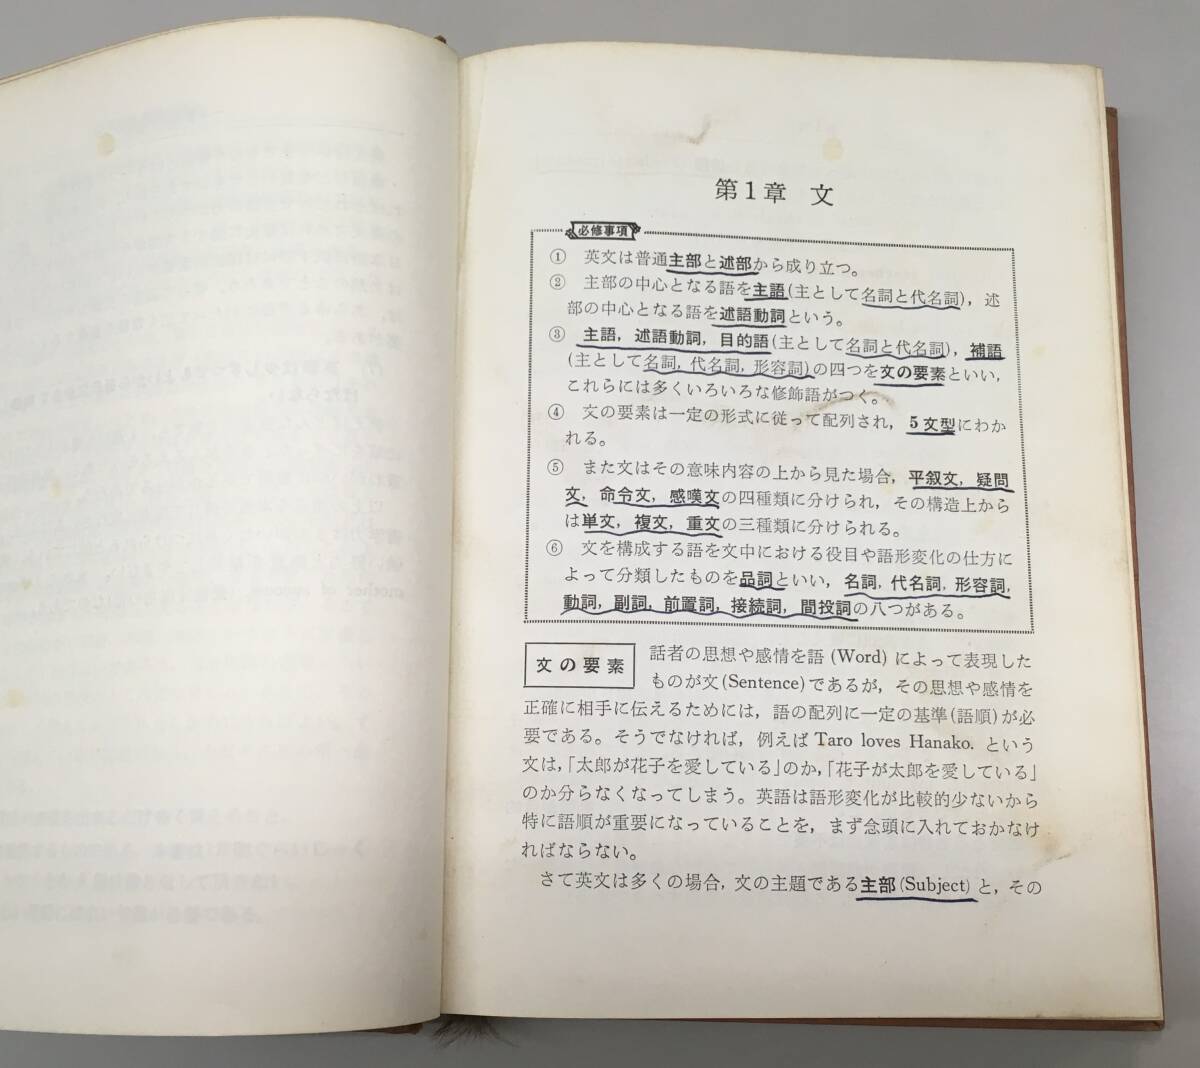 mother
第1章 文
必修事項
① 英文は普通主部と述部から成り立つ。
② 主部の中心となる語を主語(主として名詞と代名詞),述
部の中心となる語を述語動詞という。
③ 主語,述語動詞,目的語(主として名詞と代名詞),補語
(主として名詞,代名詞,形容詞)の四つを文の要素といい,
これらには多くいろいろな修飾語がつく。
④ 文の要素は一定の形式に従って配列され,5文型にわか
れる。
⑤ また文はその意味内容の上から見た場合,平叙文,疑問
文,命令文,感嘆文の四種類に分けられ,その構造上から
は単文,複文,重文の三種類に分けられる。
⑥ 文を構成する語を文中における役目や語形変化の仕方に
よって分類したものを品詞といい,名詞,代名詞,形容詞,
動詞,副詞,前置詞,接続詞,間投詞の八つがある。
文の要素
話者の思想や感情を語(Word)によって表現した
ものが文(Sentence)であるが,その思想や感情を
正確に相手に伝えるためには,語の配列に一定の基準(語順)が必
要である。そうでなければ,例えばTaro loves Hanako.という
文は,「太郎が花子を愛している」のか,「花子が太郎を愛している」
のか分らなくなってしまう。英語は語形変化が比較的少ないから
特に語順が重要になっていることを,まず念頭に入れておかなけ
ればならない。
さて英文は多くの場合,文の主題である主部(Subject)と,その